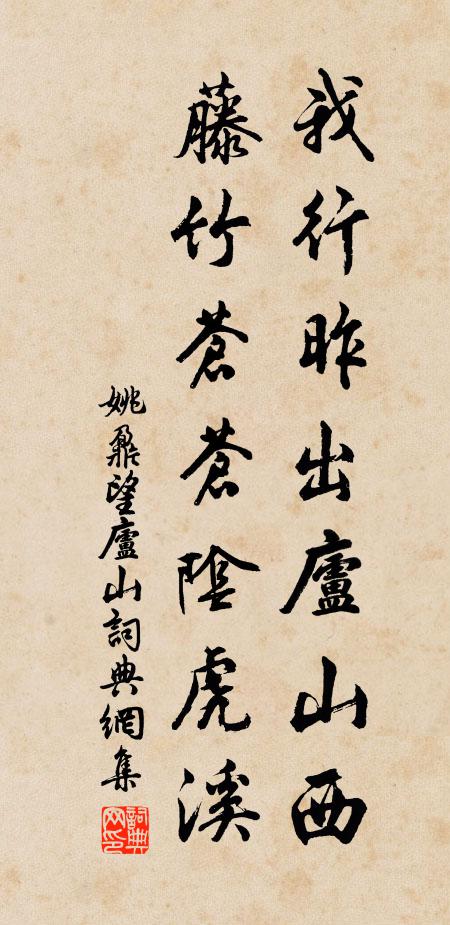 我行昨出廬山西
藤竹蒼蒼陰虎溪
姚鼐望廬山詞典網集
詞典
网印